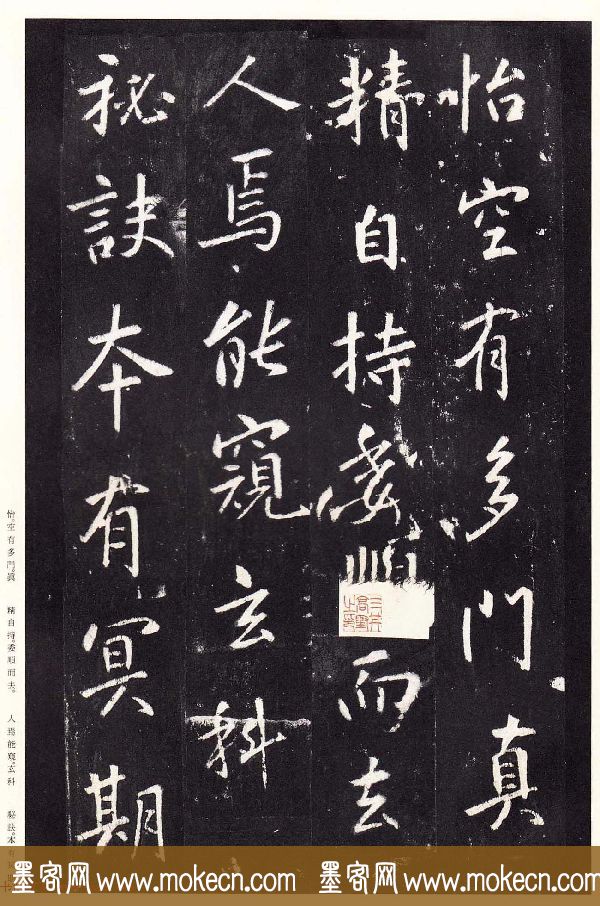 怡空有多門真
精自持委順而去
人焉能窺玄科
秘訣本有冥期
怡空有多門。眞
精自持。委順而去。
人焉能窺。玄科
秘訣。本有冥期
墨客网 www.mokecn.com 墨客网 www.mokecn.com